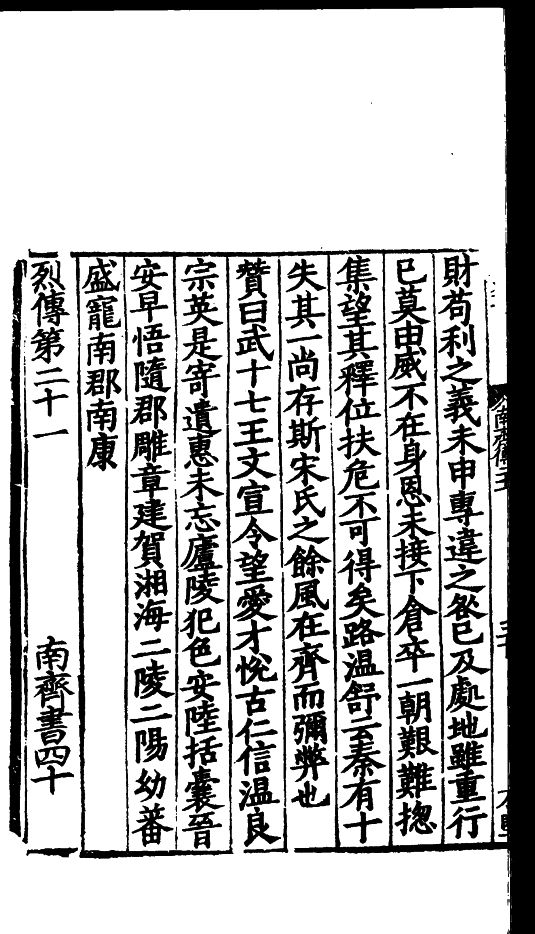 財苟利之義未申專違之咎已及處地雖重行
已莫由威不在身恩未接下倉卒一朝艱難揔
集望其釋位扶危不可得矣路溫舒云秦有十
失其一尚存斯宋氏之餘風在齊而彌弊也
贊曰武十七王文宣令望愛才悅古仁信溫良
宗英是寄遺惠未忘廬陵犯色安陸括囊晉
安早悟隨郡雕章建賀湘海二陵二陽幼蕃
盛寵南郡南康
列傳第二十一 南齊書四十